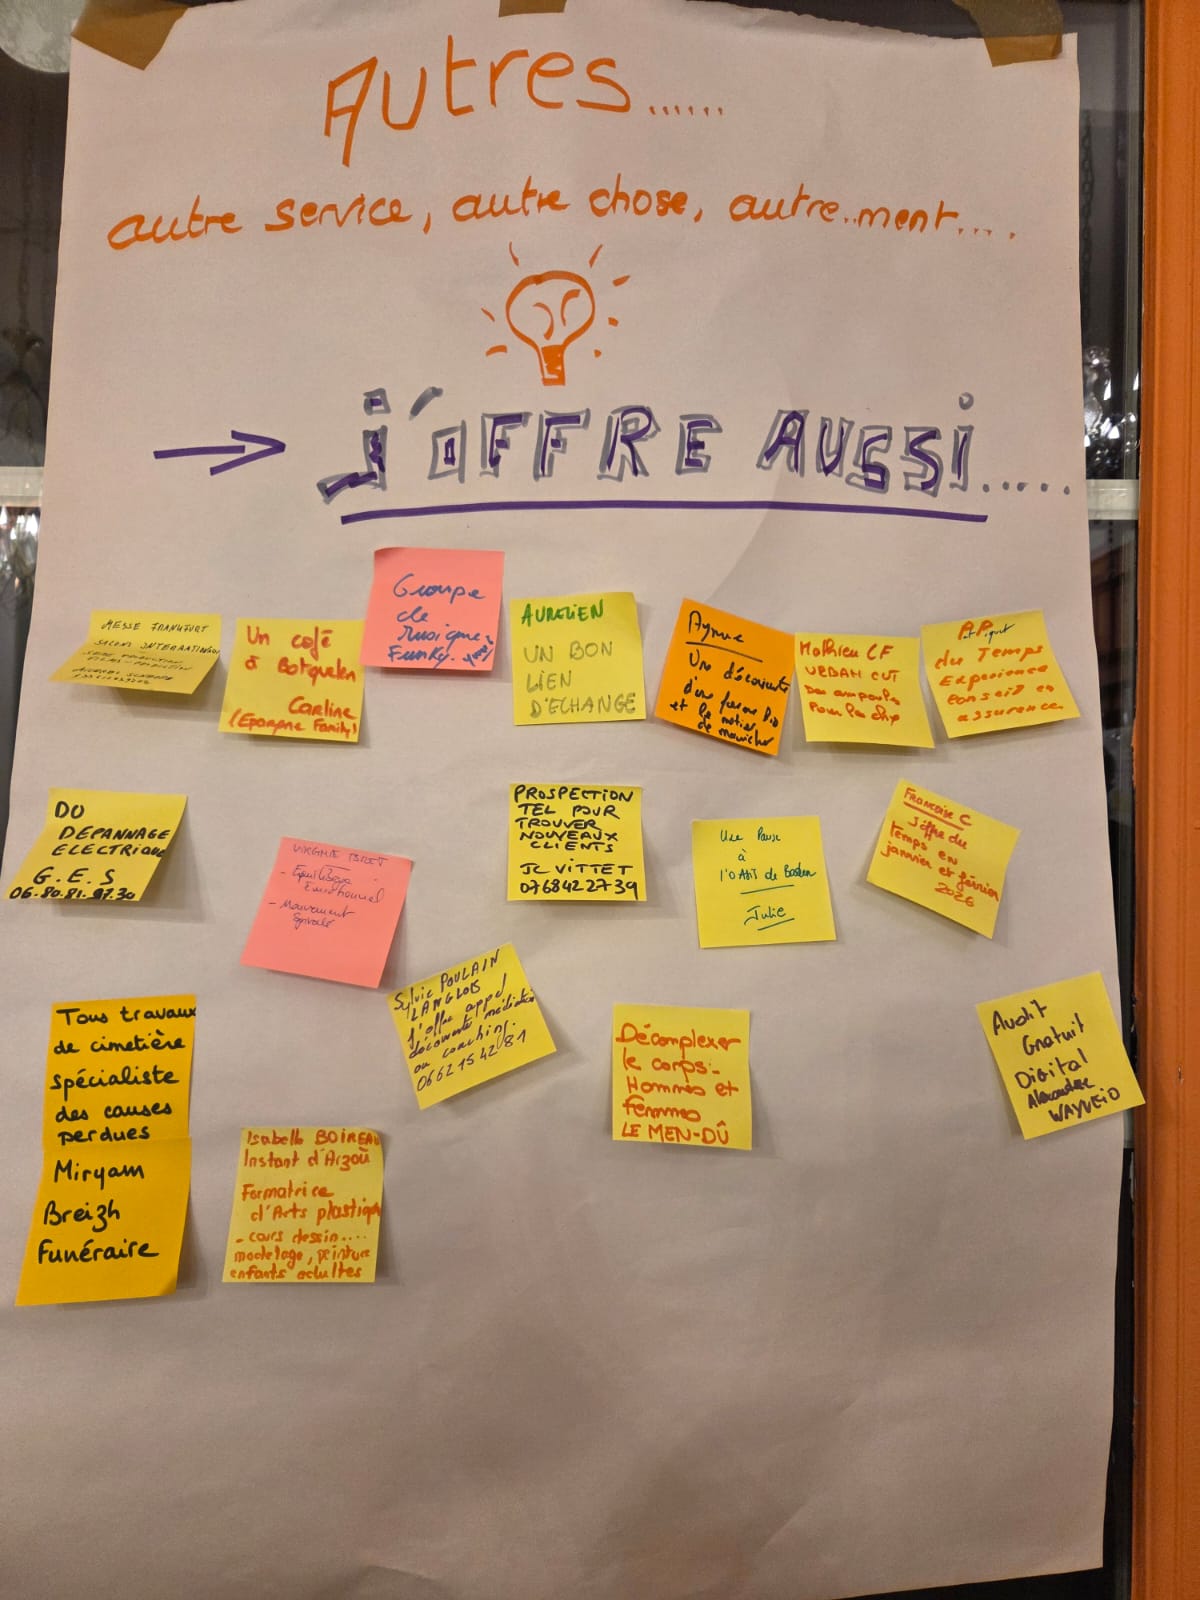 AUTRES......
autre service, autre chose, autre..ment....
→ J'OFFRE AUSSI.....
MESSE FRANKFURT
SALONS INTERNATIONAUX
Un café
à Botquelen
Carline
(Epargne Family)
Groupe
de
Musique
Funky.
AURELIEN
UN BON
LIEN
D'ECHANGE
Aymne
Une découverte
d'une ferme
et le métier
de
Mathieu CF
URBAN CUT
Des
pour le
A.P.
du Temps
Experience
conseil en
assurance
DU
DEPANNAGE
ELECTRIQUE
G.E.S
06.80.81.97.30
VIRGINIE
-
Emotionnel
- Mouvement
PROSPECTION
TEL POUR
TROUVER
NOUVEAUX
CLIENTS
JC VITTET
0768422739
Une Pause
à
l'O
Julie
FRANCOISE C
J'offre du
temps en
janvier et février
2026
Tous travaux
de cimetière
spécialiste
des causes
perdues
Miryam
Breizh
Funéraire
Sylvie POULAIN
LANGLOIS
J'offre appel
découverte médiation
ou coaching.
0662154281
Décomplexer
le corps:
Hommes et
femmes
LE MEN-DÛ
Audit
Gratuit
Digital
Alexandre
WAYVEIO
Isabelle BOIREAU
Instant d'Arzoù
Formatrice
d'Arts plastiques
- cours dessin....
modelage, peinture
enfants adultes